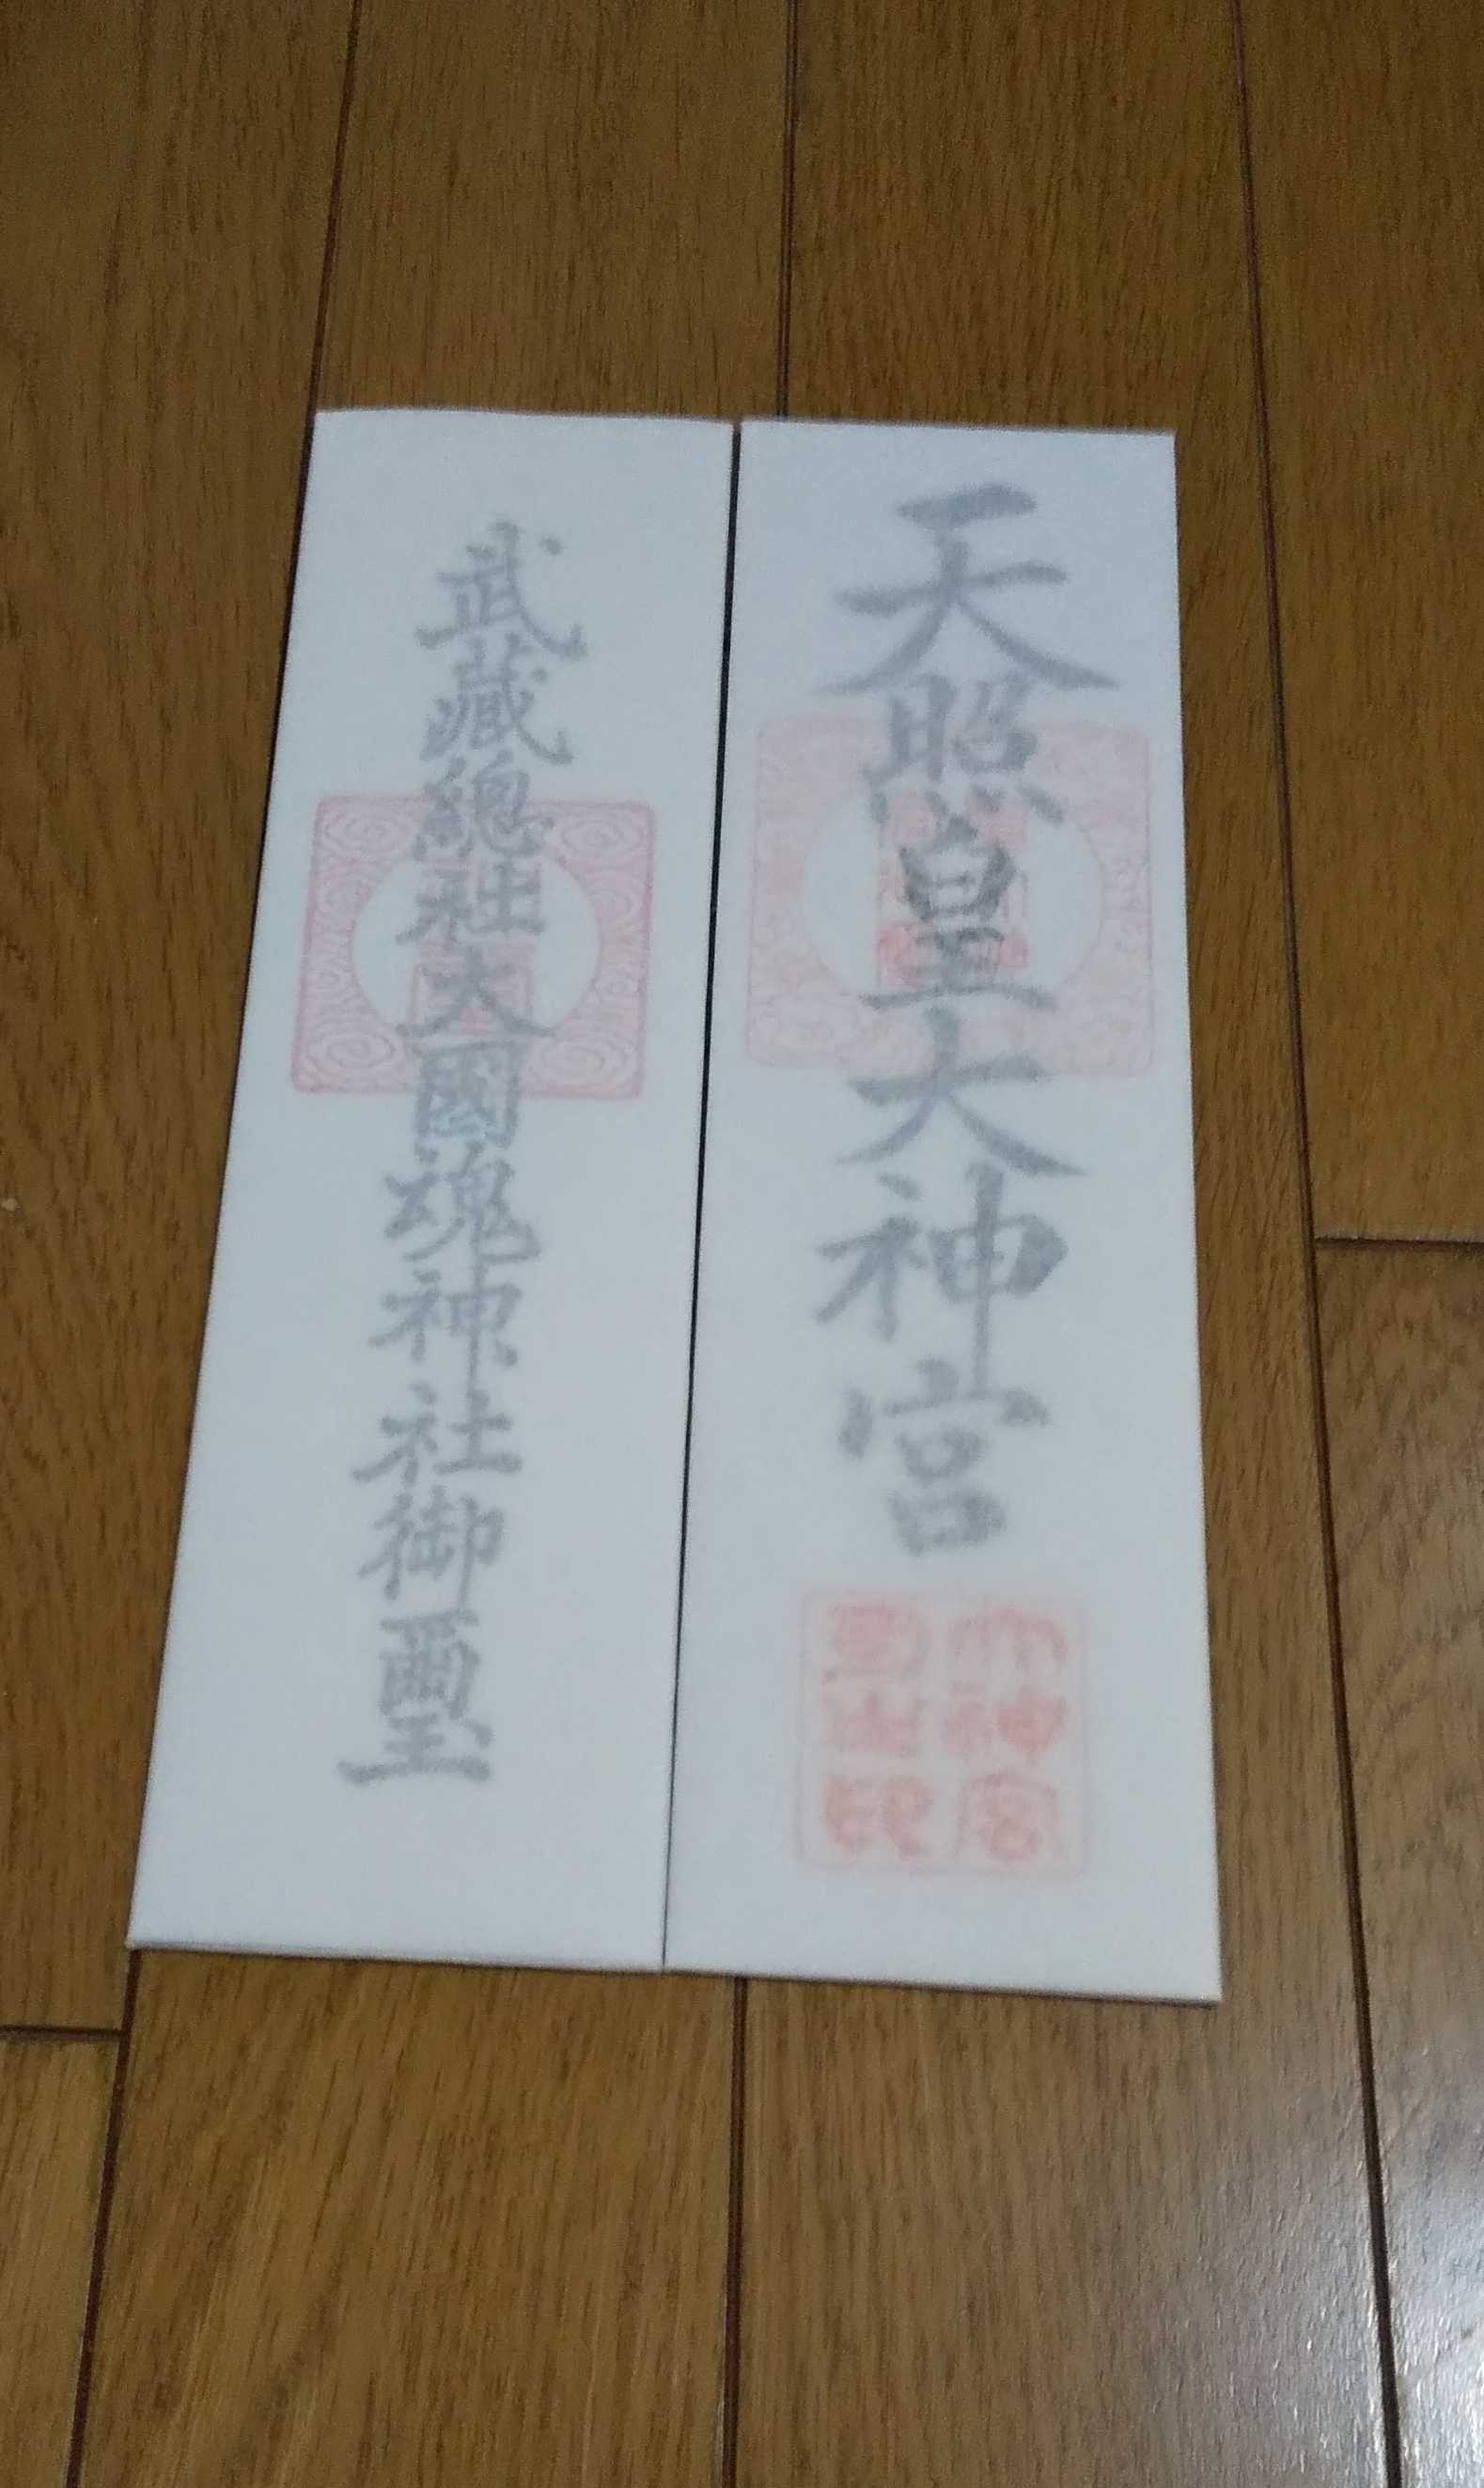 天照皇大神宮
武藏總社大國魂神社御璽